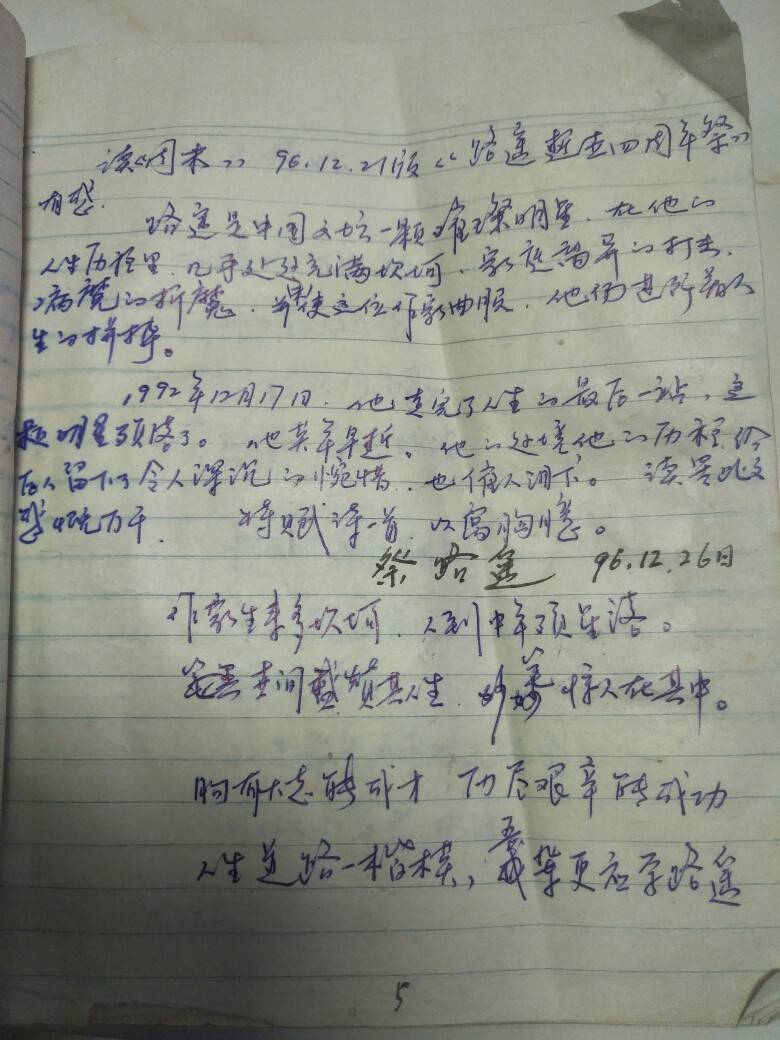 读《周末》96.12.21版《路遥逝去四周年祭》
有感.
路遥是中国文坛一颗璀璨明星.在他的
人生历程里.几乎处处充满坎坷.家庭 的打击.
病魔的折魔. 使这位作家曲服.他仍进行着人
生的拼搏。
1992年12月17日.他走完了人生的最后一站,这
颗明星殒落了。他英年早逝。他的处境他的历程.给
后人留下了令人深沉的惋惜.也催人泪下。读罢此文
感慨万千. 特赋诗一首.以寓胸臆。
祭路遥 96.12.26日
作家生来多坎坷.人到中年殒星落。
世间 其人生. 惊人在其中。
胸有大志能成才 历尽艰辛能成功
人生道路一楷模, 辈更应学路遥
5